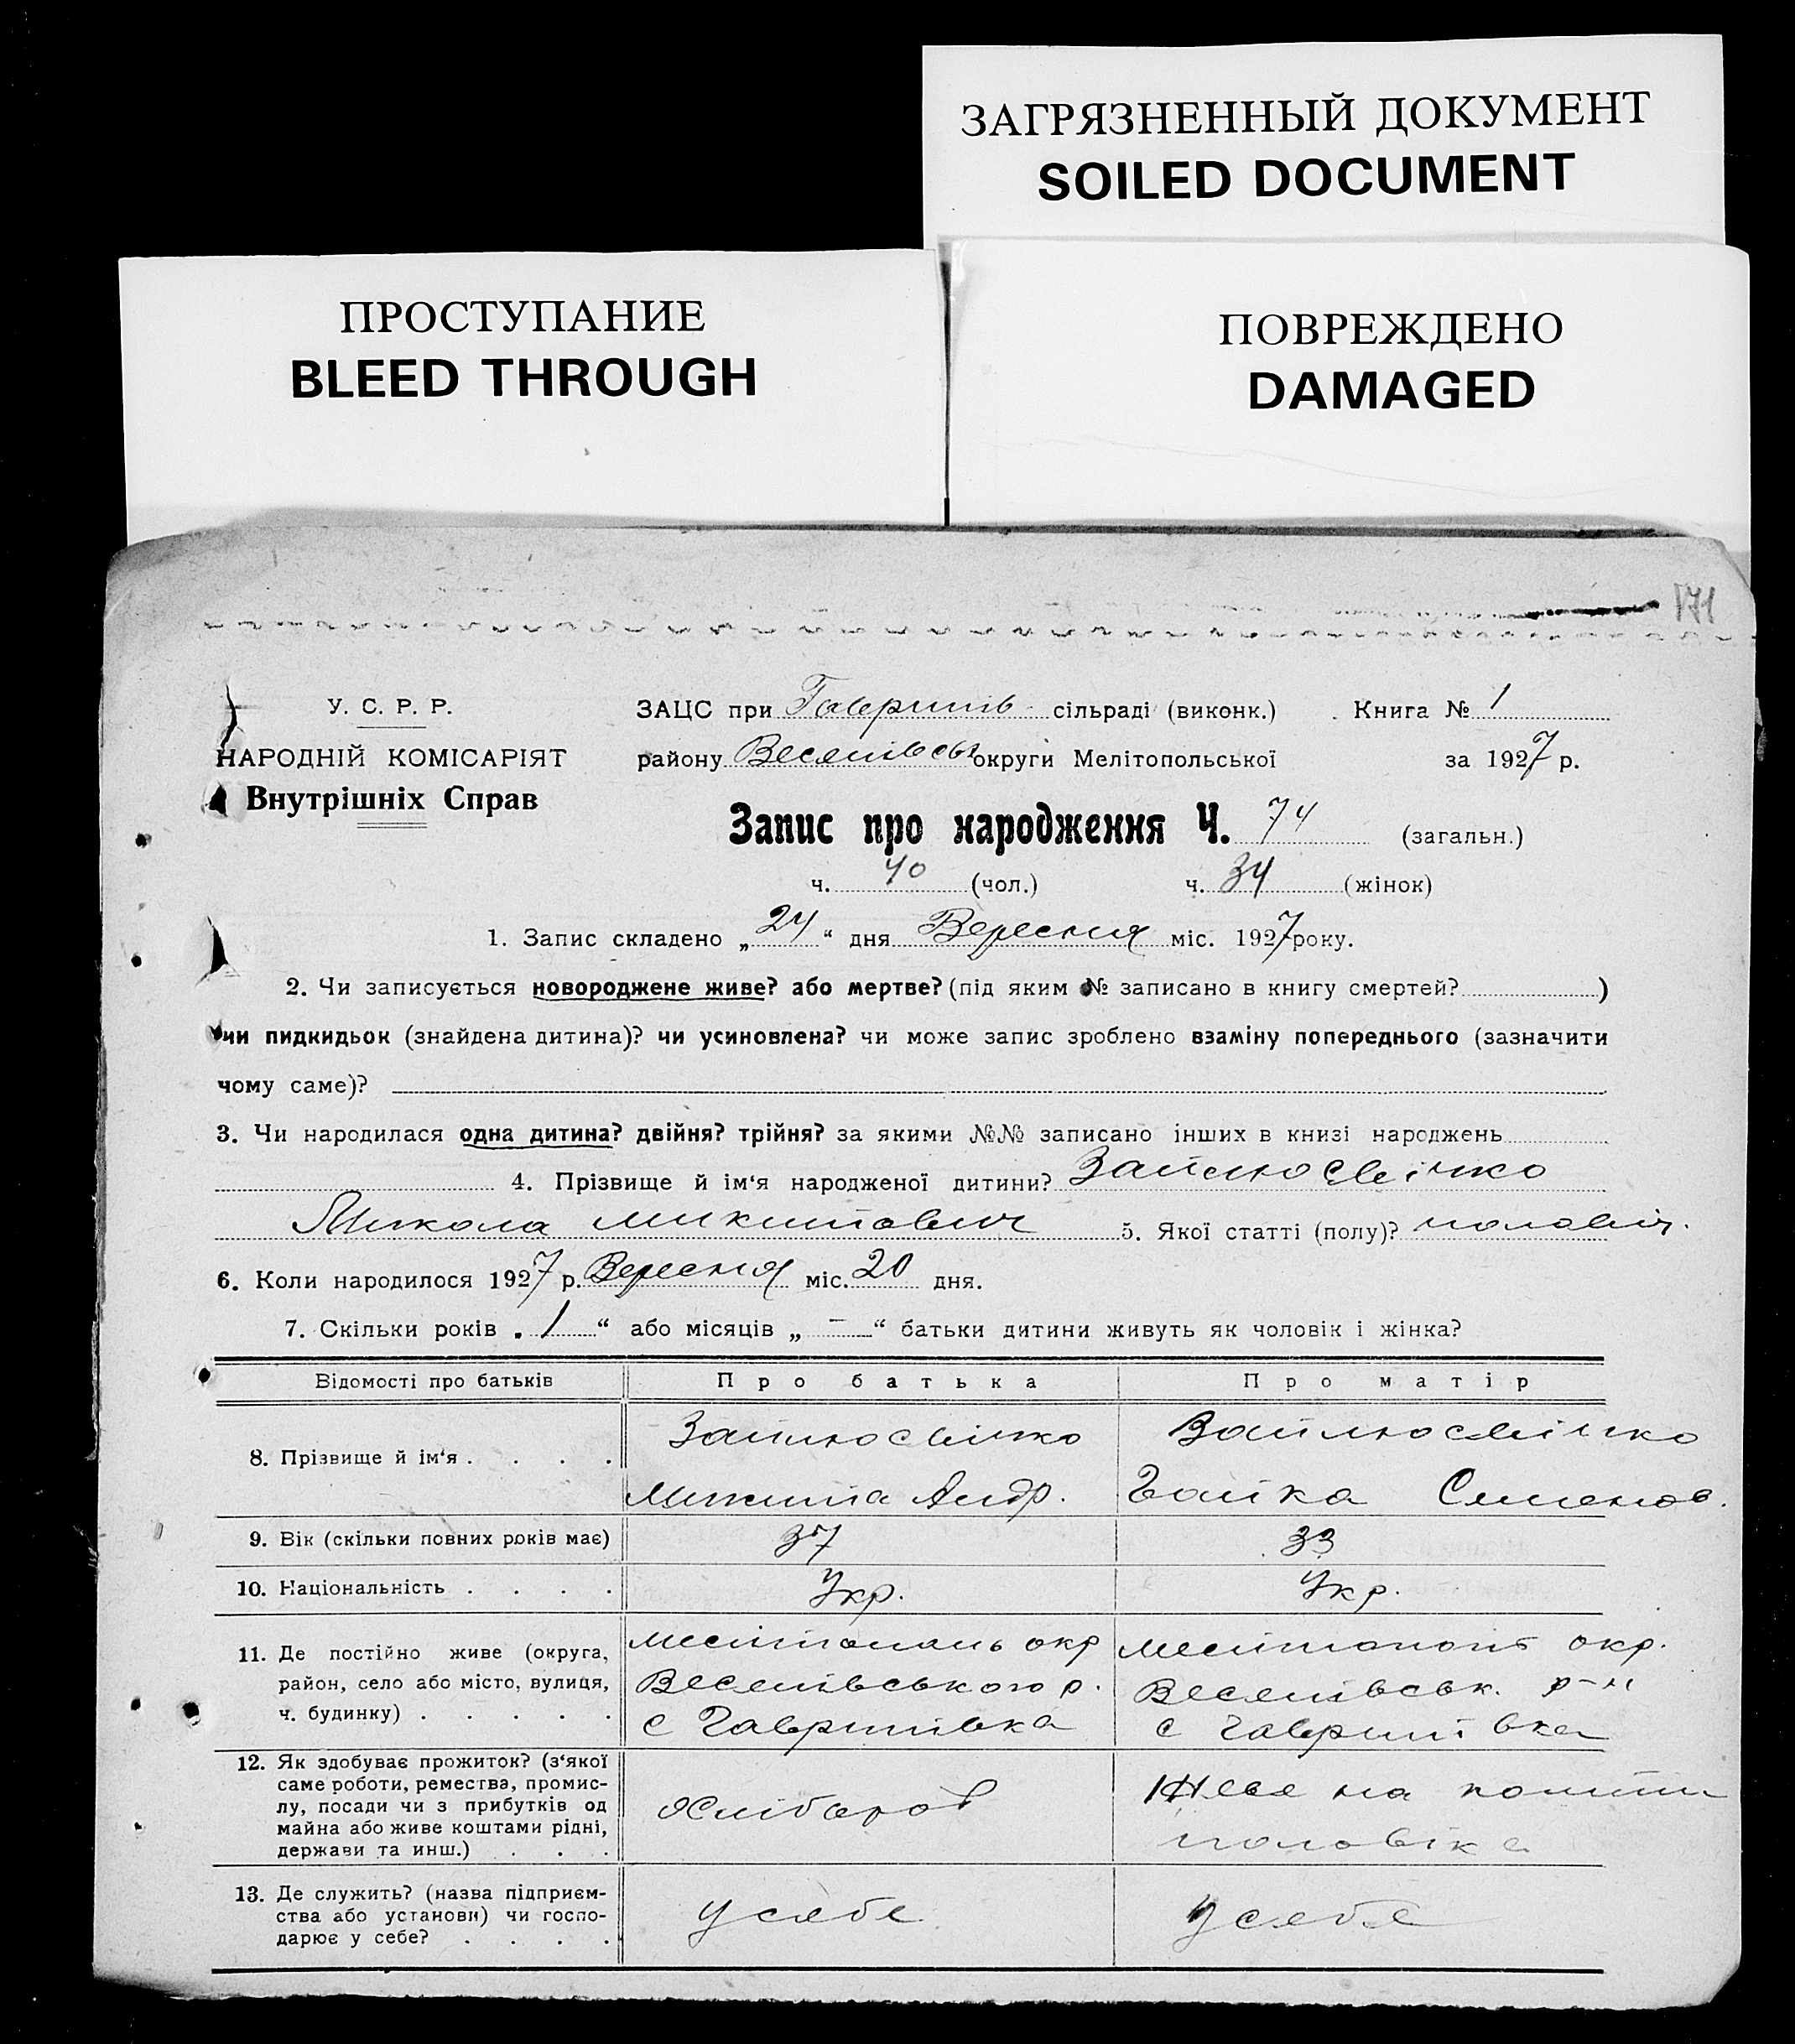 ЗАГРЯЗНЕННЫЙ ДОКУМЕНТ
SOILED DOCUMENT
ПРОСТУПАНИЕ
BLEED THROUGH
ПОВРЕЖДЕНО
DAMAGED
171
У. С. Р. Р.
НАРОДНІЙ КОМІСАРІЯТ
Внутрішніх Справ
ЗАЦС при Гаврилів сільраді (виконк.) Книга № 1
району Веселівськ округи Мелітопольської за 1927 р.
Запис про народження Ч. 74 (загальн.)
ч. 40 (чол.) ч. 34 (жінок)
1. Запис складено „24“ дня Вересня міс. 1927 року.
2. Чи записується новороджене живе? або мертве? (під яким № записано в книгу смертей? )
чи пидкидьок (знайдена дитина)? чи усиновлена? чи може запис зроблено взаміну попереднього (зазначити
чому саме)?
3. Чи народилася одна дитина? двійня? трійня? за якими №№ записано інших в книзі народжень
4. Прізвище й ім‘я народженої дитини?
Микола Микитович 5. Якої статті (полу)? чоловіч.
6. Коли народилося 1927 р. Вересня міс. 20 дня.
7. Скільки років „1“ або місяців „ – “ батьки дитини живуть як чоловік і жінка?
Відомості про батьків Про батька Про матір
8. Прізвище й ім‘я
Микита Андр. Семенов.
9. Вік (скільки повних років має) 37 33
10. Національність Укр. Укр.
11. Де постійно живе (округа,
район, село або місто, вулиця,
ч. будинку)
Мелітополь окр
Веселівського р.
с Гаврилівка
Мелітополь окр.
Веселівськ. р-н
с Гаврилівка
12. Як здобуває прожиток? (з‘якої
саме роботи, ремества, промис-
лу, посади чи з прибутків од
майна або живе коштами рідні,
держави та инш.)
Хлібороб
Живе на кошти
чоловіка
13. Де служить? (назва підприєм-
ства або установи) чи госпо-
дарює у себе?
у себе
у себе